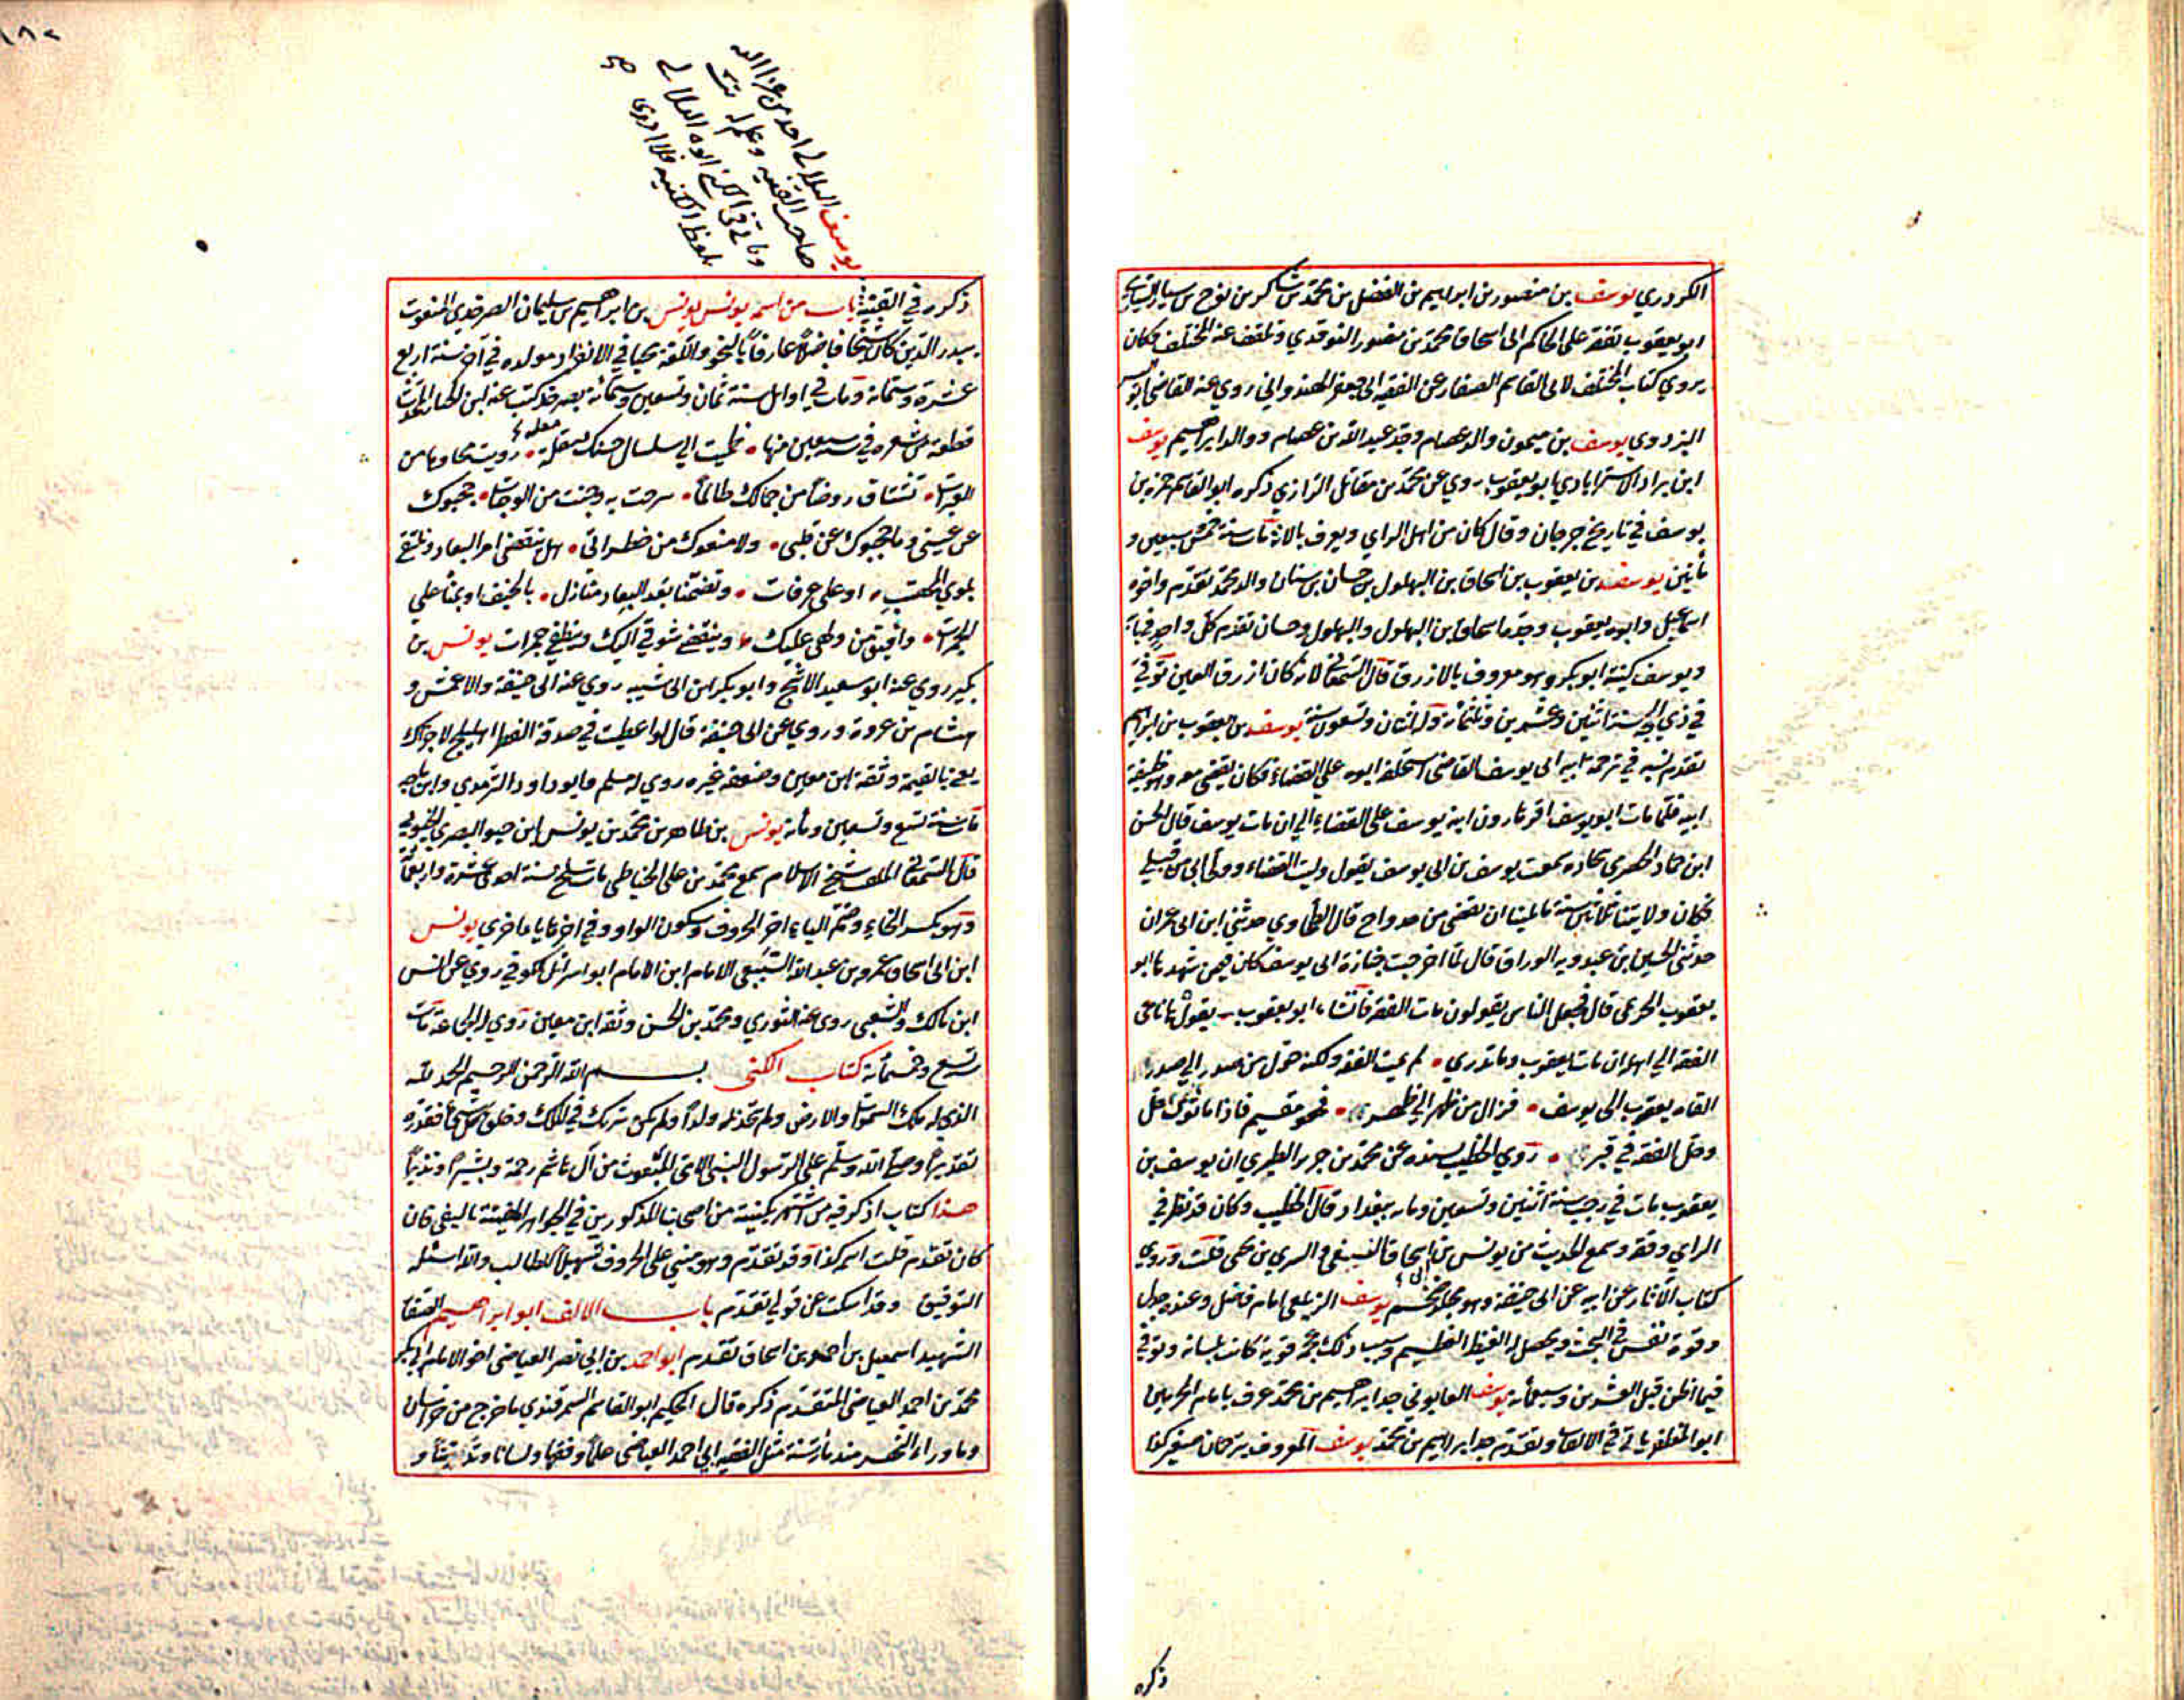 الكردري يوسف بن منصور بن ابراهيم بن الفضل بن محمد بن شاكر بن نوح بن سيار السياري
ابو يعقوب تفقه على الحاكم ابي اسحاق محمد بن منصور النوقدي وتلقف عنه المختلف فكان
يروي كتاب المختلف لابي القاسم الصفار عن الفقيه ابي جعفر الهندواني روي عنه القاضي ابو اليسر
البزدوي يوسف بن ميمون والد عصام وجد عبد الله بن عصام ووالد ابراهيم يوسف
ابن يراد الاستراباذي ابو يعقوب روي عن محمد بن مقاتل الرازي ذكره ابو القاسم حمزه بن
يوسف في تاريخ جرجان وقال كان من اهل الراي ويعرف بالاز مات سنة خمس وسبعين و
مأتين يوسف بن يعقوب بن اسحاق بن البهلول بن حسان بن سنان والد محمد تقدم واخوه
اسماعيل وابوه يعقوب وجدهما اسحاق بن البهلول والبهلول وحسان تقدم كل واحد في بابه
ويوسف كنيته ابو بكر وهو معروف بالازرق قال السمعاني لانه كان ازرق العين توفي
في ذي الحجة سنة اثنين وعشرين وثلثمأة وله اثنان وتسعون سنة يوسف بن يعقوب بن ابراهيم
تقدم نسبه في ترجمة ابيه ابي يوسف القاضي استخلفه ابوه على القضاء فكان يقضي معه وهو خليفة
ابيه فلما مات ابو يوسف اقر هارون ابنه يوسف على القضاء الي ان مات يوسف قال الحسن
ابن حماد الحضرمي سجادة سمعت يوسف بن ابي يوسف يقول وليت القضاء وولي ابي من قبلي
فكان ولايتنا ثلاثين سنة ما بلينا ان نقضي من جد واح قال الطحاوي حدثني ابن ابي عمران
حدثني الحسين بن عبدويه الوراق قال لما اخرجت جنازة ابي يوسف كان فيمن شهدها ابو
يعقوب الخريمي قال فجعل الناس يقولون مات الفقه فانشاء ابو يعقوب يقول يا ناعي
الفقه الي اهله ان مات يعقوب وما تدري • لم يمت الفقه ولكنه حول من صدر الي صدر
القاه يعقوب الي يوسف • فزال من طهر الي طهر • فهو مقيم فاذا ما ثوي حل
وحل الفقه في قبر • روي الخطيب بسنده عن محمد بن جرير الطبري ان يوسف بن
يعقوب مات في رجب سنة اثنين وتسعين وماية ببغداد قال الخطيب وكان قد نظر في
الراي وفقه وسمع الحديث من يونس بن ابي اسحاق السبيعي والسري بن يحيى قلت وروي
كتاب الآثار عن ابيه عن ابي حنيفة وهو مجلد ضخم يوسف الزيلعي امام فاضل وعنده جدل
وقوة نفس في البحث ويحصل له الغيظ العظيم وسبب ذلك عجمة قوية كانت بلسانه وتوفي
فيما اظن قبل العشرين وسبعمأية يوسف القابوني جد ابراهيم بن محمد عرف بامام الحرمين
ابو المظفر ياتي في الالقاب وتقدم جد ابراهيم بن محمد يوسف المعروف بترجمان صغير كذا
ذكره
يوسف البلالي احد من عزا اليه
صاحب القنية وعلم له بت
وياتي في الكنى ابوه البلالي
بلفظ الكنية فلا ادري
صح
ذكره في القنية باب من اسمه يونس يونس بن ابراهيم بن سليمان الصرخدي المنعوت
بدر الدين كان شيخا فاضلا عارفا بالنحو واللغة محبا في الانفراد مولده في آخر سنة اربع
عشرة وستمائة ومات في اوايل سنة ثمان وتسعين وستمائة بصرخد كتب عنه ابن الخباز
قطعة من شعره في سنة سبعين منها • ظميت الي سلسال حسنك مقلة • رويت محاجرها من
العبرات • تشتاق روضا من جمالك طالما • سرحت به وجنت من الوجنات • حجبوك
عن عيني وما حجبوك عن قلبي • ولا منعوك من خطراتي • هل ينقضي امر البعاد ونلتقي
بلوي المحصب • او على عرفات • وتضمنا بعد البعاد منازل • بالخيف او بمنا علي
الجمرات • وافيق من ولهي عليك • وينقضي شوقي اليك وينطفي جمرات يونس بن
بكير روي عنه ابو سعيد الاشج وابو بكر ابن ابي شيبه روي عنه ابي حنيفة والاعمش و
هشام بن عروة وروي عن ابي حنيفة قال لو اعطيت في صدقة الفطر اهليلج لاجزاك
يعني بالقيمة وثقه ابن معين وضعفه غيره روي له مسلم وابو داود الترمذي وابن ماجه
مات سنة تسع وتسعين ومأية يونس بن طاهر بن محمد بن يونس ابن حيو البصري الخيوي
قال السمعاني الملقب شيخ الاسلام سمع محمد بن علي الحناطي مات سلخ سنة احدى عشرة واربعمأة
وهو بكسر الخاء وضم الياء اخر الحروف وسكون الواو وفي اخرها ياء اخرى يونس
ابن ابي اسحاق عمرو بن عبد الله السبيعي الامام ابن الامام ابو اسرائيل الكوفي روي عن انس
ابن مالك والشعبي روى عنه الثوري ومحمد بن الحسن وثقه ابن معين روي له الجماعة مات
تسع وخمسمأئة كتاب الكنى بسم الله الرحمن الرحيم الحمد لله
الذي له ملك السموات والارض ولم يتخذ ولداً ولم يكن له شريك في الملك وخلق كل شيء فقدره
تقديراً وصلى الله وسلم على الرسول النبي الامي المبعوث من آل هاشم رحمة وبشيراً ونذيراً
هذا كتاب اذكر فيه من اشتهر بكنيته من اصحابنا المذكورين في الجواهر المضيئة تاليفي فان
كان تقدم قلت اسمه كذا وقد تقدم وهو مبني على الحروف تسهيلاً للطالب والله اسئله
التوفيق وقد اسكت عن قولي تقدم باب الالف ابو ابراهيم الصفار
الشهيد اسمعيل بن احمد بن اسحاق تقدم ابو احمد بن ابي نصر العياضي اخو الامام ابي بكر
محمد بن احمد العياضي المتقدم ذكره قال الحكيم ابو القاسم السمرقندي ما خرج من خراسان
وما وراء النهر منذ مأة سنة مثل الفقيه ابي احمد العياضي علماً وفقها ولسانا و